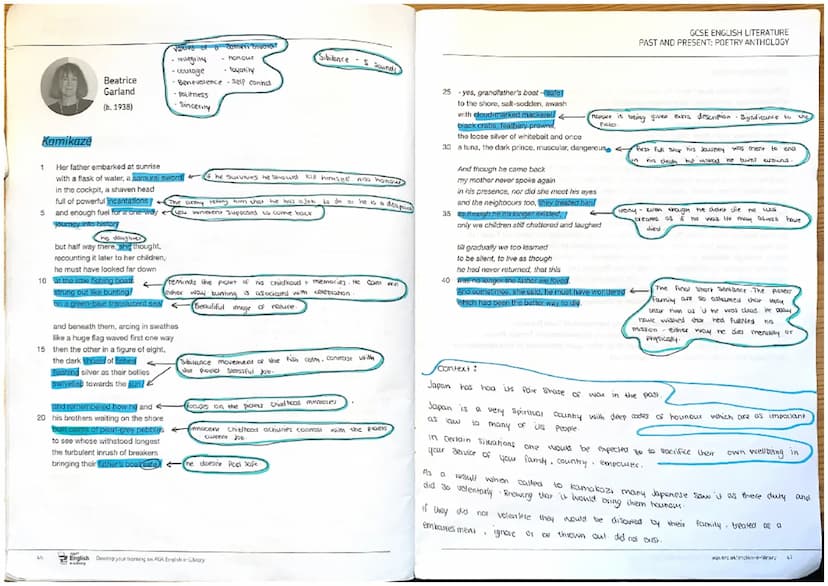 values of a samurai
· integrity · honour
· courage · loyalty
· Benevolence · Self control
· politness
· Sincerity
Sibilance - S sounds
Beatrice
Garland
(b. 1938)
Kamikaze
1 Her father embarked at sunrise
with a flask of water, a samurai sword
if he survives he should kill himself
in the cockpit, a shaven head
full of powerful incantations
5 and enough fuel for a one-way
wasn't supposed to come back
journey into history
his daughter
but half way there, she thought,
recounting it later to her children,
he must have looked far down
10 at the little fishing boats
strung out like bunting
reminds the pilot of his childhood + memories.
bunting is associated with celebration.
on a green-blue translucent sea
Beautiful image of nature
and beneath them, arcing in swathes
like a huge flag waved first one way
15 then the other in a figure of eight,
the dark shoals of fishes
flashing silver as their bellies
swivelled towards the sun
Sibilance movement of the fish calm, contrast with
the pilots stressful job.
and remembered how he and
focuses on the pilots childhood memories
20 his brothers waiting on the shore
built cairns of pearl-grey pebbles
innocent childhood activities contrast with the pilots
current job
to see whose withstood longest
the turbulent inrush of breakers
bringing their father's boat safe
he doesn't feel safe
GCSE ENGLISH LITERATURE
PAST AND PRESENT: POETRY ANTHOLOGY
25 - yes, grandfather's boat – safe
to the shore, salt-sodden, awash
with cloud-marked mackerel,
black crabs, feathery prawns,
Nature is being given extra description - significance to the
pilot
the loose silver of whitebait and once
30 a tuna, the dark prince, muscular, dangerous.
first full stop his journey was meant to end
in his death but instead he turns around.
And though he came back
my mother never spoke again
in his presence, nor did she meet his eyes
and the neighbours too, they treated him
35 as though he no longer existed,
irony - even though he didnt die he was
treated as if he was. He may aswell have
died
only we children still chattered and laughed
till gradually we too learned
to be silent, to live as though
he had never returned, that this
40 was no longer the father we loved.
And sometimes, she said, he must have wondered
which had been the better way to die.
The final short sentence. The pilots
family are so ashamed that they
treat him as if he was dead. He may
have wished that he'd fulfilled his
mission - either way he dies mentally or
physically.
Context:
Japan has had its fair share of war in the past.
Japan is a very spiritual country with deep codes of honour which are as important
as law to many of its people.
In certain situations one would be expected to sacrifice their own wellbeing in
your service of your family, country, emperor.
As a result when called to kamakazi many Japanese saw it as there duty and
did so voluntarily - knowing that it would bring them honour.
If they did not volunteer they would be disowned by their family, treated as a
embarresment, ignore or thrown out
46
English
e-Library
Develop your learning on AQA English e-Library
aqa.org.uk/english-e-library
47